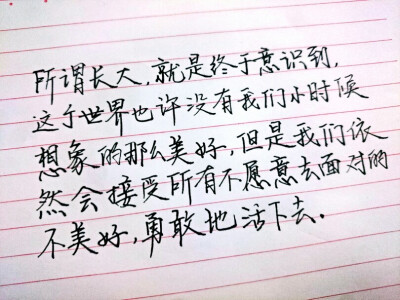 所谓长大，就是终于意识到，
这个世界也许没有我们小时候
想象的那么美好，但是我们依
然会接受所有不愿意去面对的
不美好，勇敢地活下去。